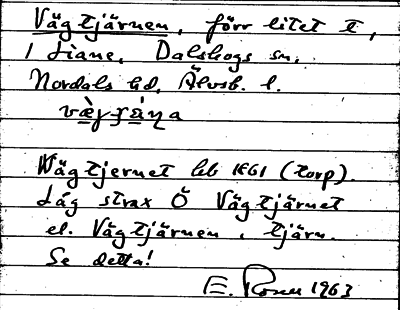 Vägtjärnen, förr litet t,
i Liane, Dalskogs sn,
Nordals hd, Älvsb. l.
Wägtjernet hb 1861 (torp).
Låg strax Ö Vägtjärnet
el. Vägtjärnen, tjärn.
Se detta!
E. Rosell 1963